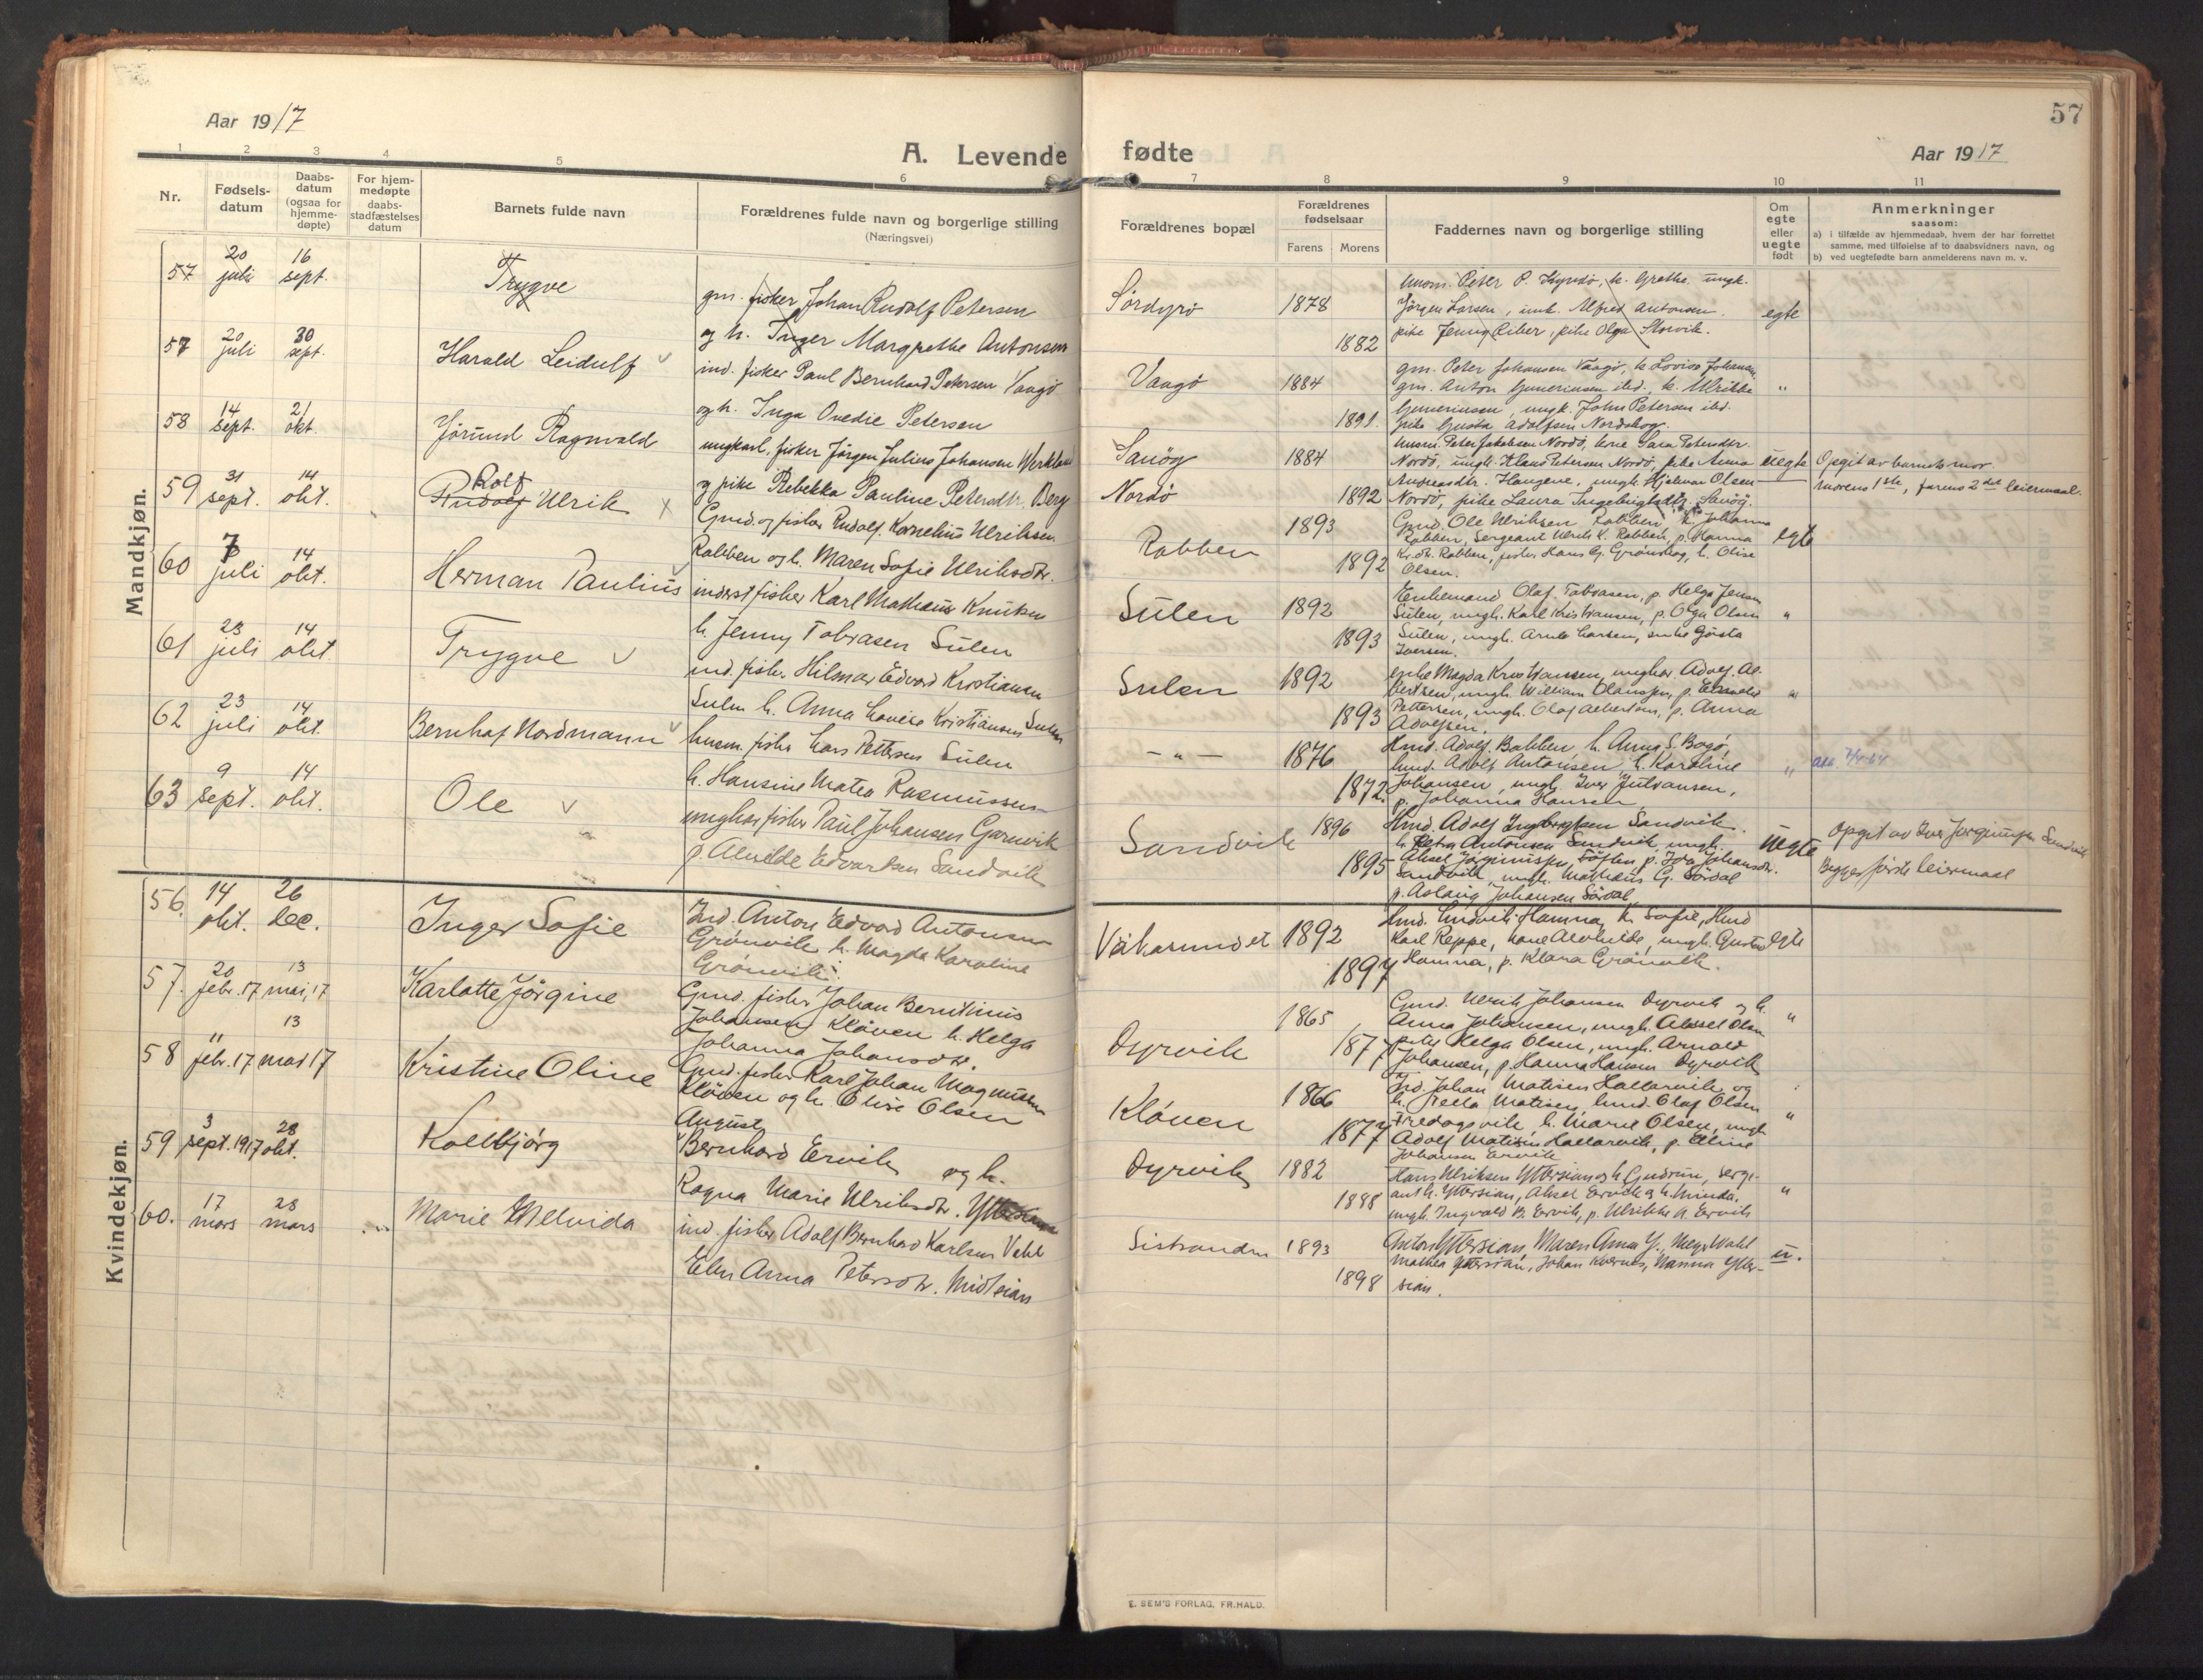 57
Aar 1917
A. Levende
fødte
Aar 1917
1 2 3 4 5 6 7 8 9 10 11
Nr.
Fødsels-
datum
Daabs-
datum
(ogsaa for
hjemme-
døpte)
For hjem-
medøpte
daabs-
stadfæstelses
datum
Barnets fulde navn
Forældrenes fulde navn og borgerlige stilling
(Næringsvei)
Forældrenes bopæl
Forældrenes
fødselsaar
Farens Morens
Faddernes navn og borgerlige stilling
Om
egte
eller
uegte
født
Anmerkninger
saasom:
a) i tilfælde av hjemmedaab, hvem der har forrettet
samme, med tilføielse af to daabsvidners navn, og
b) ved uegtefødte barn anmelderens navn m. v.
Mandkjøn.
57 20 juli 16 sept.
Trygve
gm. fisker Johan Rudolf Petersen
og h. Inger Margrethe Antonsen
Sørdyrø 1878
1882
Jørgen Larsen, Alfred Antonsen.
egte
57 20 juli 30 sept.
Harald Leidulf
ind. fisker Paul Bernhard Petersen Vaagø
og h. Inga Ovedie Petersen
Vaagø 1884
1891.
gm. Peter Johansen Vaagø, h. Lovise Johansen,
ungk. John Petersen ibd.
pike Gusta Adolfsen Nordskog.
"
58 14 sept. 21 okt.
Jørund Ragnvald
ungkarl. fisker Jørgen Julius Johansen
og pike Rebekka Pauline Petersdtr. Berg
Nordø
1884
1892
Peter Jakobsen Nordø, kone Sara Petersdtr.
Nordø, ungk. Klaus Petersen Nordø, pike Anna
Andreasdtr. Haugene, ungk. Hjelmar Olsen
Nordø, pike Laura
uegte
Opgit av barnets mor.
Morens 1ste, farens 2det leiermaal.
59 31 sept. 14 okt.
Rolf
Rudolf Ulrik
Gmd. og fisker Rudolf Kornelius Ulriksen
Rabben og h. Maren Sofie Ulriksdtr.
Rabben
1893
1892
Gmd. Ole Ulriksen Rabben, h. Johanna
Rabben, Sergeant Ulrik K. Rabben, p. Hanna
Kr.dtr. Rabben, fisker Hans G. Grønskag, h. Olise
Olsen.
egte
60 7 juli 14 okt.
Herman Paulius
inderst fisker Karl Mathæus Knutsen
h. Jenny Tobiasen Sulen
Sulen 1892
1893
Enkemand Olaf Tobiasen, p. Helga Jensen
Sulen, ungk. Karl Kristiansen, p. Olga Olsen
Sulen, ungk. Arnt Larsen, enke Gjøsta
Iversen.
"
61 23 juli 14 okt.
Trygve
ind. fisker Hilmar Edvard Kristiansen
Sulen h. Anna Lovise Kristiansen Sulen
Sulen 1892
1893
enke Magda Kristiansen, ungkar Adolf Al-
bertsen, ungk. William Olaussen, p.
Pettersen, ungk. Olaf Albertsen, p. Anna
Adolfsen.
"
62 23 juli 14 okt.
Bernhof Nordmann
husm. fisker Lars Pettersen Sulen
h. Hansine Matea Rasmussen
— " — 1876
1872.
Hmd. Adolf Bakken h. Anna S. Bogø,
hmd. Adolf Antonsen h. Karoline
Johansen, ungk. Iver Julsansen,
p. Johanna Hansen.
"
63 9 sept. 14 okt.
Ole
ungkar fisker Paul Johansen Garnvik
p. Alvilde Edvardsen Sandvik
Sandvik 1896
1895
Hmd. Adolf Ingbrigtsen Sandvik.
h. Petra Antonsen Sandvik, ungk.
Sandvik, ungk. Mathæus G. Sørdal
p. Aslaug Johansen Sørdal.
uegte
Opgit av Iver Sandvik
Begges første leiermaal
Kvindekjøn.
56. 14 okt. 26 dec.
Inger Sofie
Ind. Anton Edvard Antonsen
Grønvik h. Magda Karoline
Grønvik.
1892
1897
Hmd. Hamna, h. Sofie, Hmd
Karl Reppe, kone Alvhilde, ungk. Gustav
Hamna, p. Klara Grønvik.
egte
57. 20 febr. 17 13 mai, 17
Karlotte Jørgine
Gmd. fisker Johan Berntinus
Johansen Kløven h. Helga
Johanna Johansdtr.
Dyrvik
1865
1877
Gmd. Ulrik Johansen Dyrvik og h.
Anna Johansen, ungk. Aksel Olsen
pike Helga Olsen, ungk. Arnold
Johansen, p. Hanna Hansen Dyrvik
"
58 11 febr. 17 13 mai 17
Kristine Oline
Gmd. fisker Karl Johan Magnussen
Kløven og h. Olise Olsen
Kløven
1866
1877
Ind. Johan Matisen Hallarvik og
h. Matisen, hmd. Olaf Olsen
Fredagsvik, h. Marie Olsen, ungk.
Adolf Matisen Hallarvik, p. Eline
Johansen Ervik
"
59 3 sept. 1917 28 okt.
Kollbjørg
August
Bernhard Ervik og h.
Ragna Marie Ulriksdtr. Yttersian
Dyrvik 1882
1888
Hans Ulriksen Yttersian og h. Gudrun, serge-
ant h. Yttersian, Aksel Ervik og h. Minda,
ungk. Ingvald B. Ervik, p. Ulrikke A. Ervik
"
60. 17 mars 28 mars
Marie Melvida
ind. fisker Adolf Bernhard Karlsen Vahl
Elen Anna Petersdtr. Midtsian
Sistranden 1893
1898
Anton Yttersian, Maren Anna Y., Meyer Wahl
Mathea Yttersian, Johan Kvernes, Nanna Ytter-
sian.
u.
E. SEM'S FORLAG, FR.HALD.